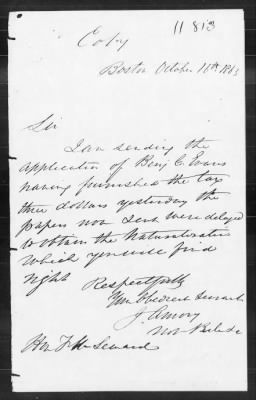 11813
Copy
Boston October 16th 1863
Sir
I am sending the
application of Benj C. Evans
having furnished the tax
three dollars yesterday the
papers now sent were delayed
to obtain the Naturalization
which you will find
right
Respectfully
Your Obedient Servant
J. Amory
Not Public
Hon F W Seward